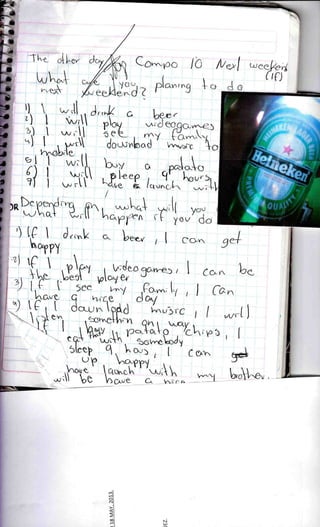 The other day Compo 10 Next weekend
(IF)
What are you planing to do
next weekend?
1) I will drink a beer
2) I will play videogames
3) I will see my family
4) I will download music to
mobile
5) I will buy a potato
6) I will pleep 9 hours
7) I will have a launch with
OR Depending on what will you
what will happen if you do
1) If I drink a beer, I can get
happy
2) If I play videogames, I can be
the best player
3) If I see my family, I can
have a nice day
4) If I download music, I will
listen somethin on way
If I buy potato chips, I
eat with somebody
sleep 9 hous, I can get
up happy
have launch with my brother,
will be have a nice
Heineken
LAGER BEER
QUALITY
18 MAY, 2013.